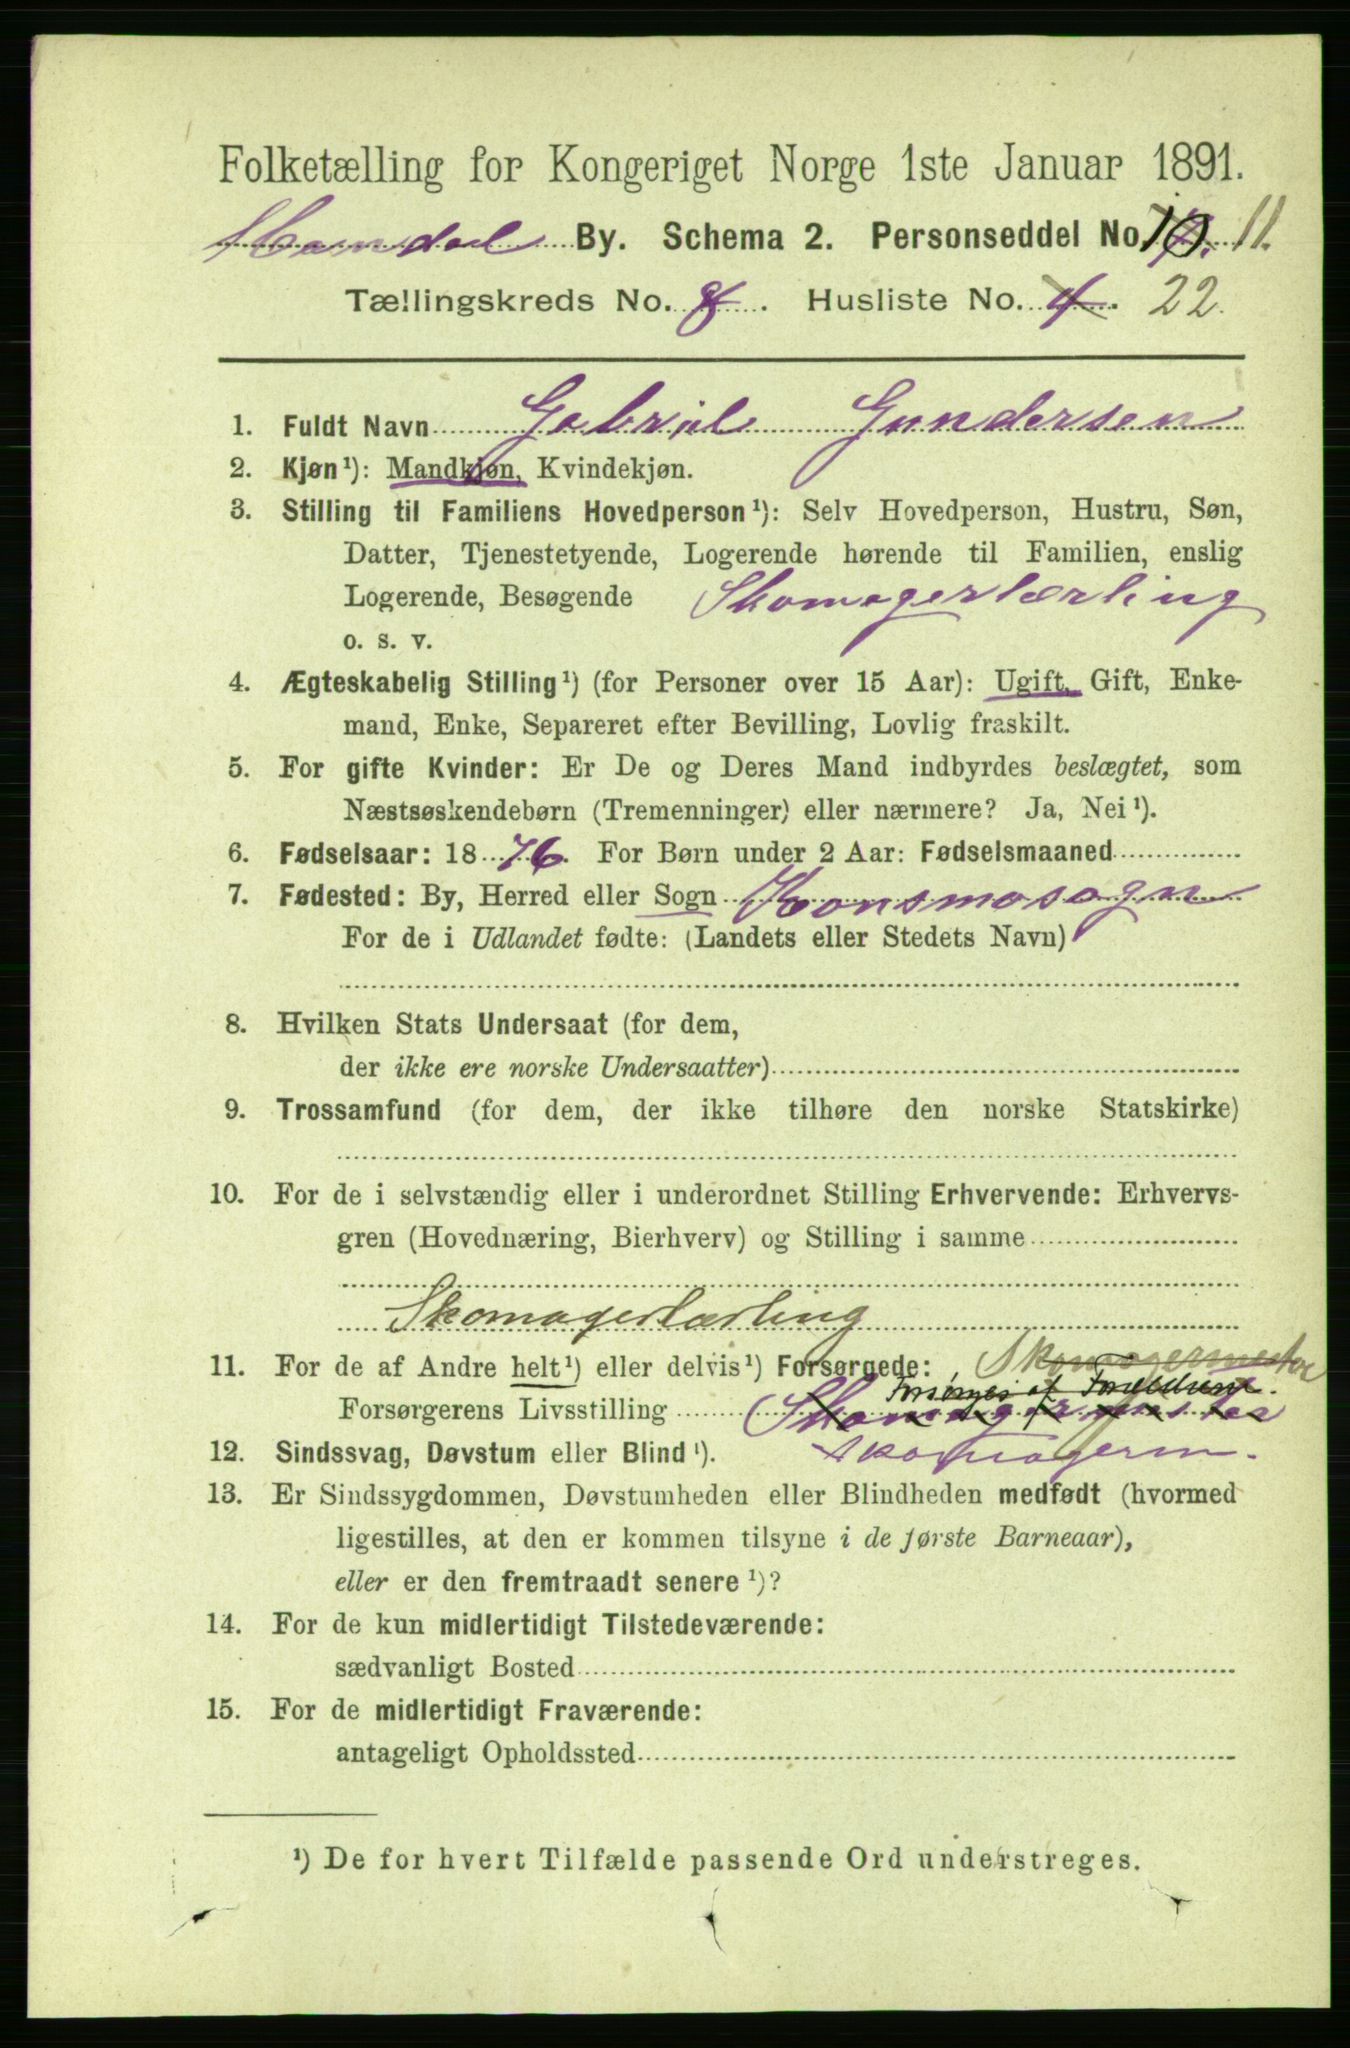 Folketælling for Kongeriget Norge 1ste Januar 1891.
Mandal By. Schema 2. Personseddel No. 10 11.
Tællingskreds No. 8. Husliste No. 4. 22.
1. Fuldt Navn Gabriel Gundersen
2. Kjøn¹): Mandkjøn, Kvindekjøn.
3. Stilling til Familiens Hovedperson¹): Selv Hovedperson, Hustru, Søn,
Datter, Tjenestetyende, Logerende hørende til Familien, enslig
Logerende, Besøgende Skomagerlærling
o. s. v.
4. Ægteskabelig Stilling¹) (for Personer over 15 Aar): Ugift, Gift, Enke-
mand, Enke, Separeret efter Bevilling, Lovlig fraskilt.
5. For gifte Kvinder: Er De og Deres Mand indbyrdes beslægtet, som
Næstsøskendebørn (Tremenninger) eller nærmere? Ja, Nei¹).
6. Fødselsaar: 1876. For Børn under 2 Aar: Fødselsmaaned
7. Fødested: By, Herred eller Sogn Konsmosogn
For de i Udlandet fødte: (Landets eller Stedets Navn)
8. Hvilken Stats Undersaat (for dem,
der ikke ere norske Undersaatter)
9. Trossamfund (for dem, der ikke tilhøre den norske Statskirke)
10. For de i selvstændig eller i underordnet Stilling Erhvervende: Erhvervs-
gren (Hovednæring, Bierhverv) og Stilling i samme
Skomagerlærling
11. For de af Andre helt¹) eller delvis¹) Forsørgede: Skomagermester
Forsørges af Forældrene.
Forsørgerens Livsstilling Skomagermester
12. Sindssvag, Døvstum eller Blind¹). Skomagerm.
13. Er Sindssygdommen, Døvstumheden eller Blindheden medfødt (hvormed
ligestilles, at den er kommen tilsyne i de første Barneaar),
eller er den fremtraadt senere¹)?
14. For de kun midlertidigt Tilstedeværende:
sædvanligt Bosted
15. For de midlertidigt Fraværende:
antageligt Opholdssted
¹) De for hvert Tilfælde passende Ord understreges.